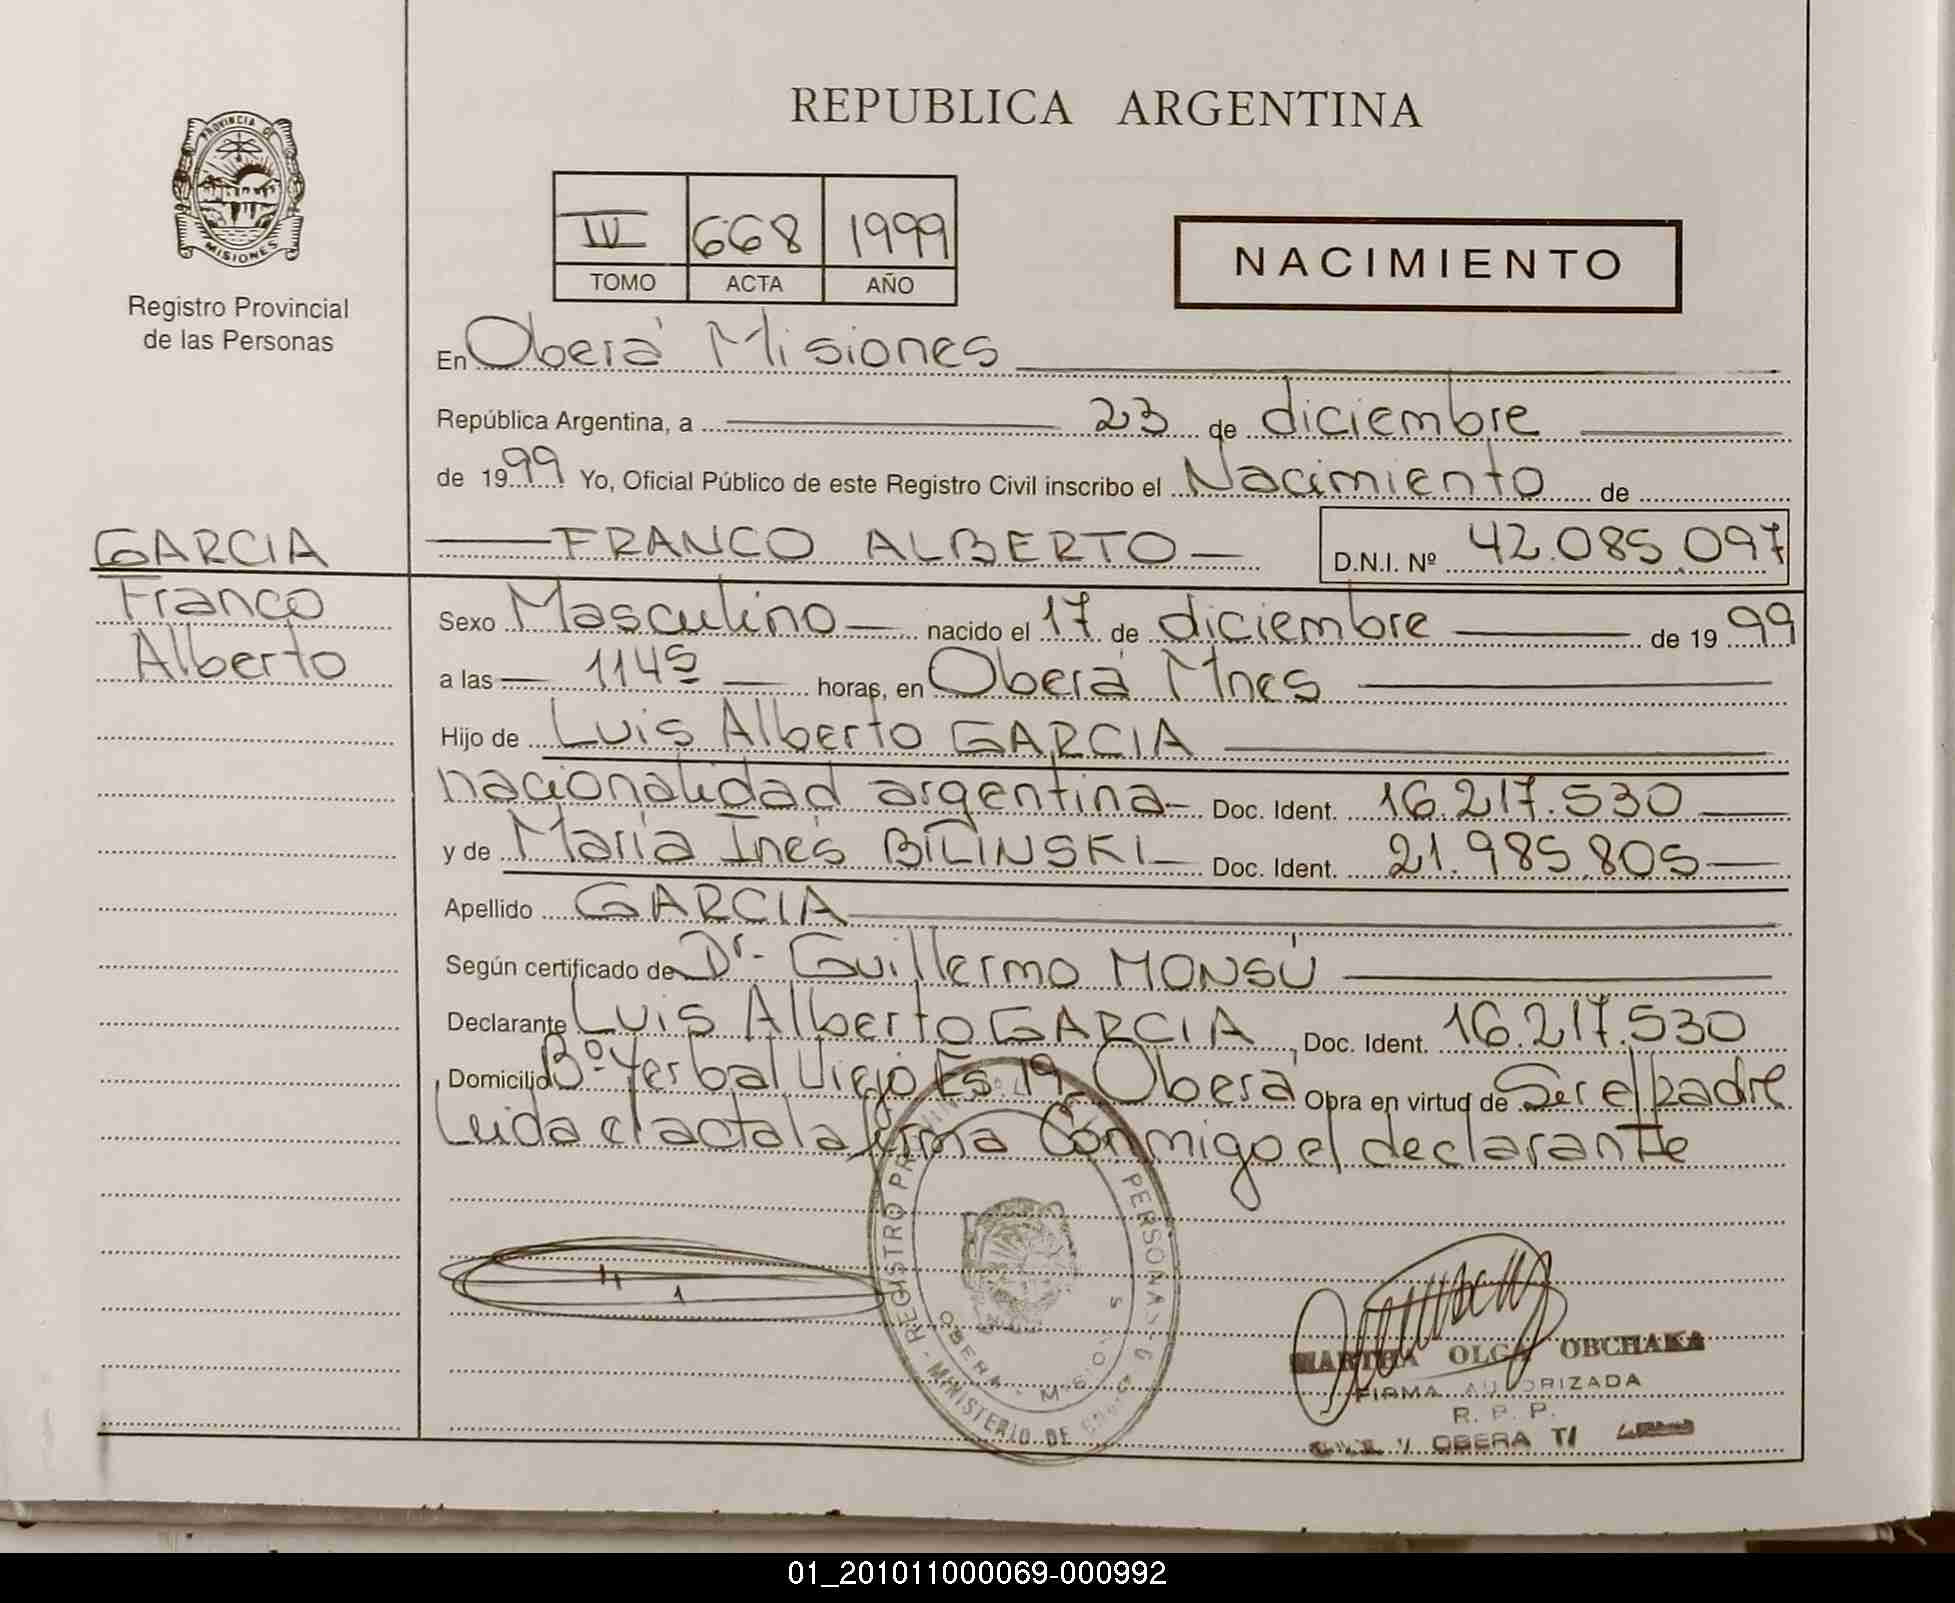 REPUBLICA ARGENTINA
PROVINCIA DE
MISIONES
Registro Provincial
de las Personas
IV 668 1999
TOMO ACTA AÑO
NACIMIENTO
En Oberá Misiones
República Argentina, a 23 de diciembre
de 1999 Yo, Oficial Público de este Registro Civil inscribo el Nacimiento de
GARCIA
Franco
Alberto
FRANCO ALBERTO D.N.I. Nº 42.085.097
Sexo Masculino nacido el 17 de diciembre de 1999
a las 1145 horas, en Oberá Mnes
Hijo de Luis Alberto GARCIA
nacionalidad argentina Doc. Ident. 16.217.530
y de María Inés BILINSKI Doc. Ident. 21.985.805
Apellido GARCIA
Según certificado de Dr. Guillermo MONSÚ
Declarante Luis Alberto GARCIA, Doc. Ident. 16.217.530
Domicilio Bº Yerbal Viejo Es 19 Oberá Obra en virtud de Ser el padre
Leida el acta la firma Conmigo el declarante
REGISTRO PERSONAS
MINISTERIO DE
OBERA
MARTHA OLGA OBCHAKA
FIRMA AUTORIZADA
R. P. P.
OBERA
01_201011000069-000992